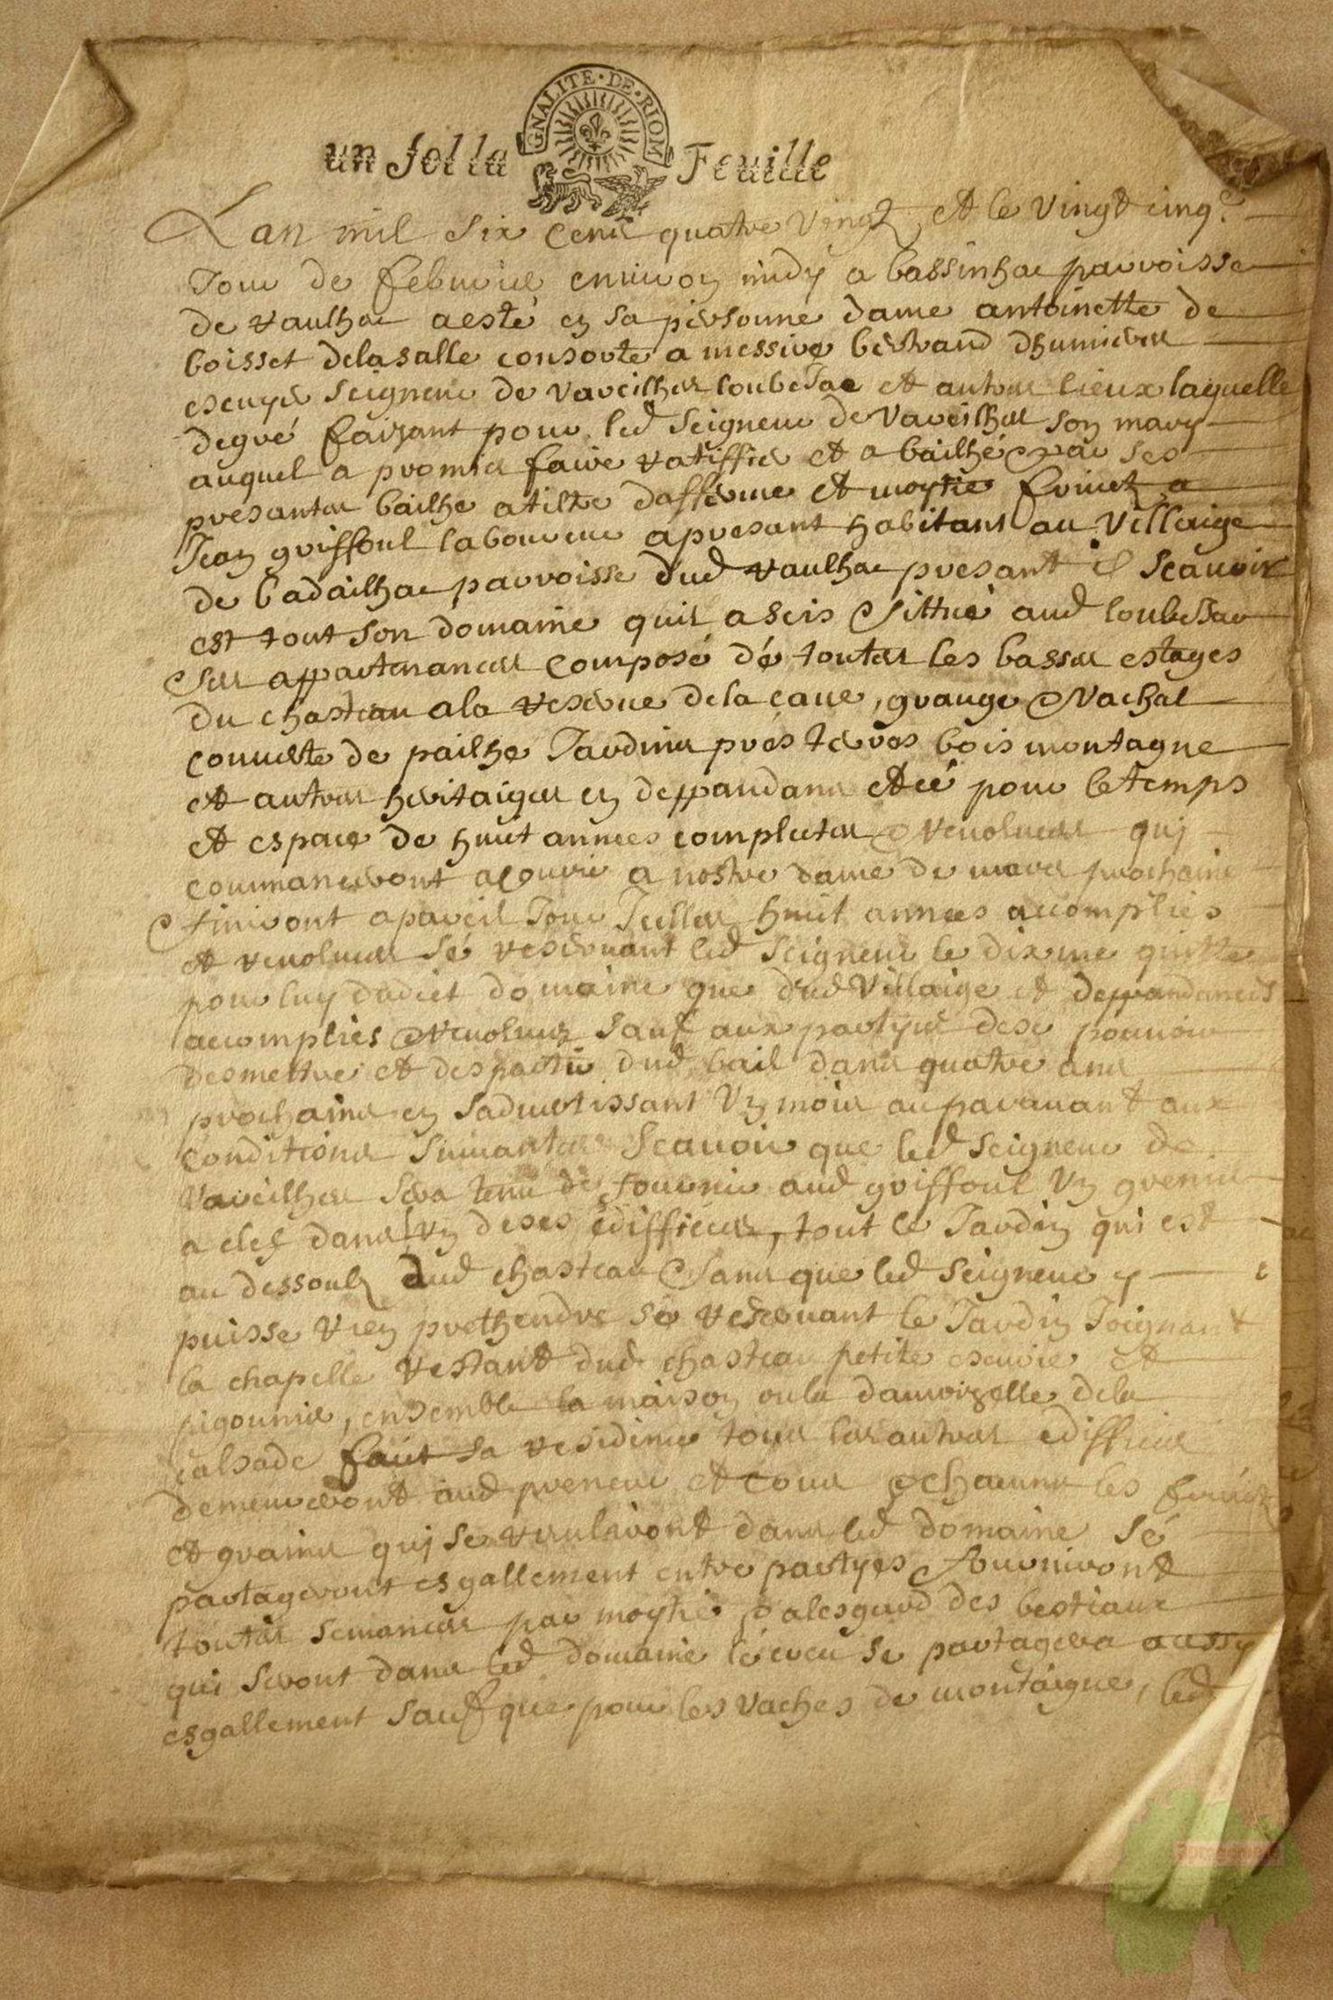 GNALITE·DE·RIOM
un sol la Feuille
Lan mil six cens quatre vingtz et le vingt cinqe
Jour de febvrier environ midy a bassinhac parroisse
de raulhac a esté en sa personne dame antoinette de
boisset delasalle consorte a messire bertrand dhumieres
escuyer seigneur de vareilhes loubejac et autres lieux laquelle
de gré faizant pour led seigneur de Vareilhes son mary
auquel a promis faire ratiffier et a bailhé & par ses
presantes bailhe a tiltre dafferme et moytié fruictz a
Jean griffoul laboureur apresant habitant au Villaige
de badailhac parroisse dud raulhac presant & scavoir
est tout son domaine quil a scis & sittué aud loubejac
& ses appartenances composé dé toutes les basses estages
du chasteau a la reserue de la caue, grange & vachal
couuerte de pailhe Jardins prés terres bois montagne
et autres heritaiges en deppandans et cé pour le temps
et espace de huit annees complettes & revolues quy
commanceront a courir a nostre dame de mars prochaine
& finiront a pareil Jour Icelles huit annees accomplies
et revolues se reseruant led seigneur le dixme quitte
pour luy dudict domaine que dud Villaige et deppandances
accomplies & revolues sauf aux partyes dese pouvoir
desmettre et despartir dud bail dans quatre ans
prochains en sadvertissant Un mois auparauant aux
conditions suivantes scavoir que led seigneur de
vareilhes sera tenu de fournir aud griffoul Un grenier
a clef dans un deses édiffices, tout le Jardin qui est
au dessoubz dud chasteau & sans que led seigneur y
puisse rien prethendre se reseruant le Jardin Joignant
la chapelle restant dud chasteau petite escurie et
pigounié, ensemble la maison ou la damoizelle dela
calsade fait sa residence tous les autres ediffices
demeureront aud preneur et tous & chacuns les fruictz
et grains quy se receuliront dans led domaine sé
partageront esgallement entre partyes & fourniront
toutes semances par moytié & a lesgard des bestiaux
qui seront dans led domaine lé creu se partagera aussy
esgallement sauf que pour les vaches de montaigne, led